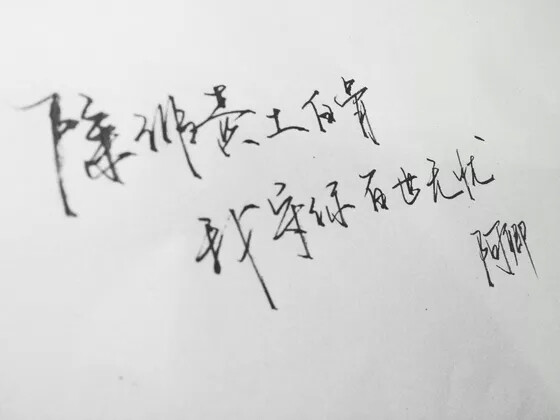 除非黄土白骨
我守你百世无忧
阿卿